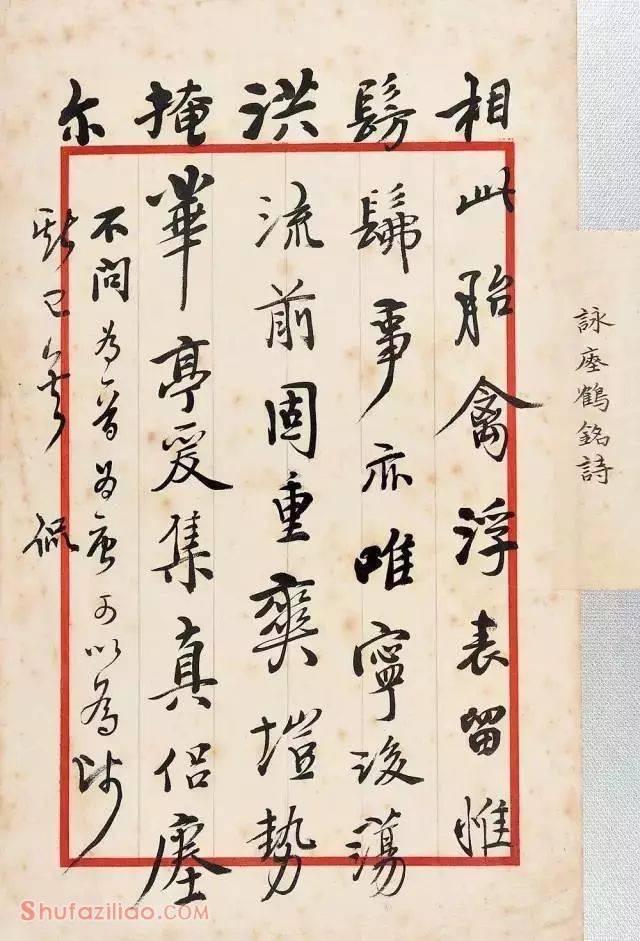 詠瘞鶴銘詩
相此胎禽浮表留惟
髣髴事亦唯寧後蕩
洪流前固重爽塏勢
掩華亭爰集真侶瘞
尔
不問為晉為唐可以為師
斯已矣 侃
Shufaziliao.COM